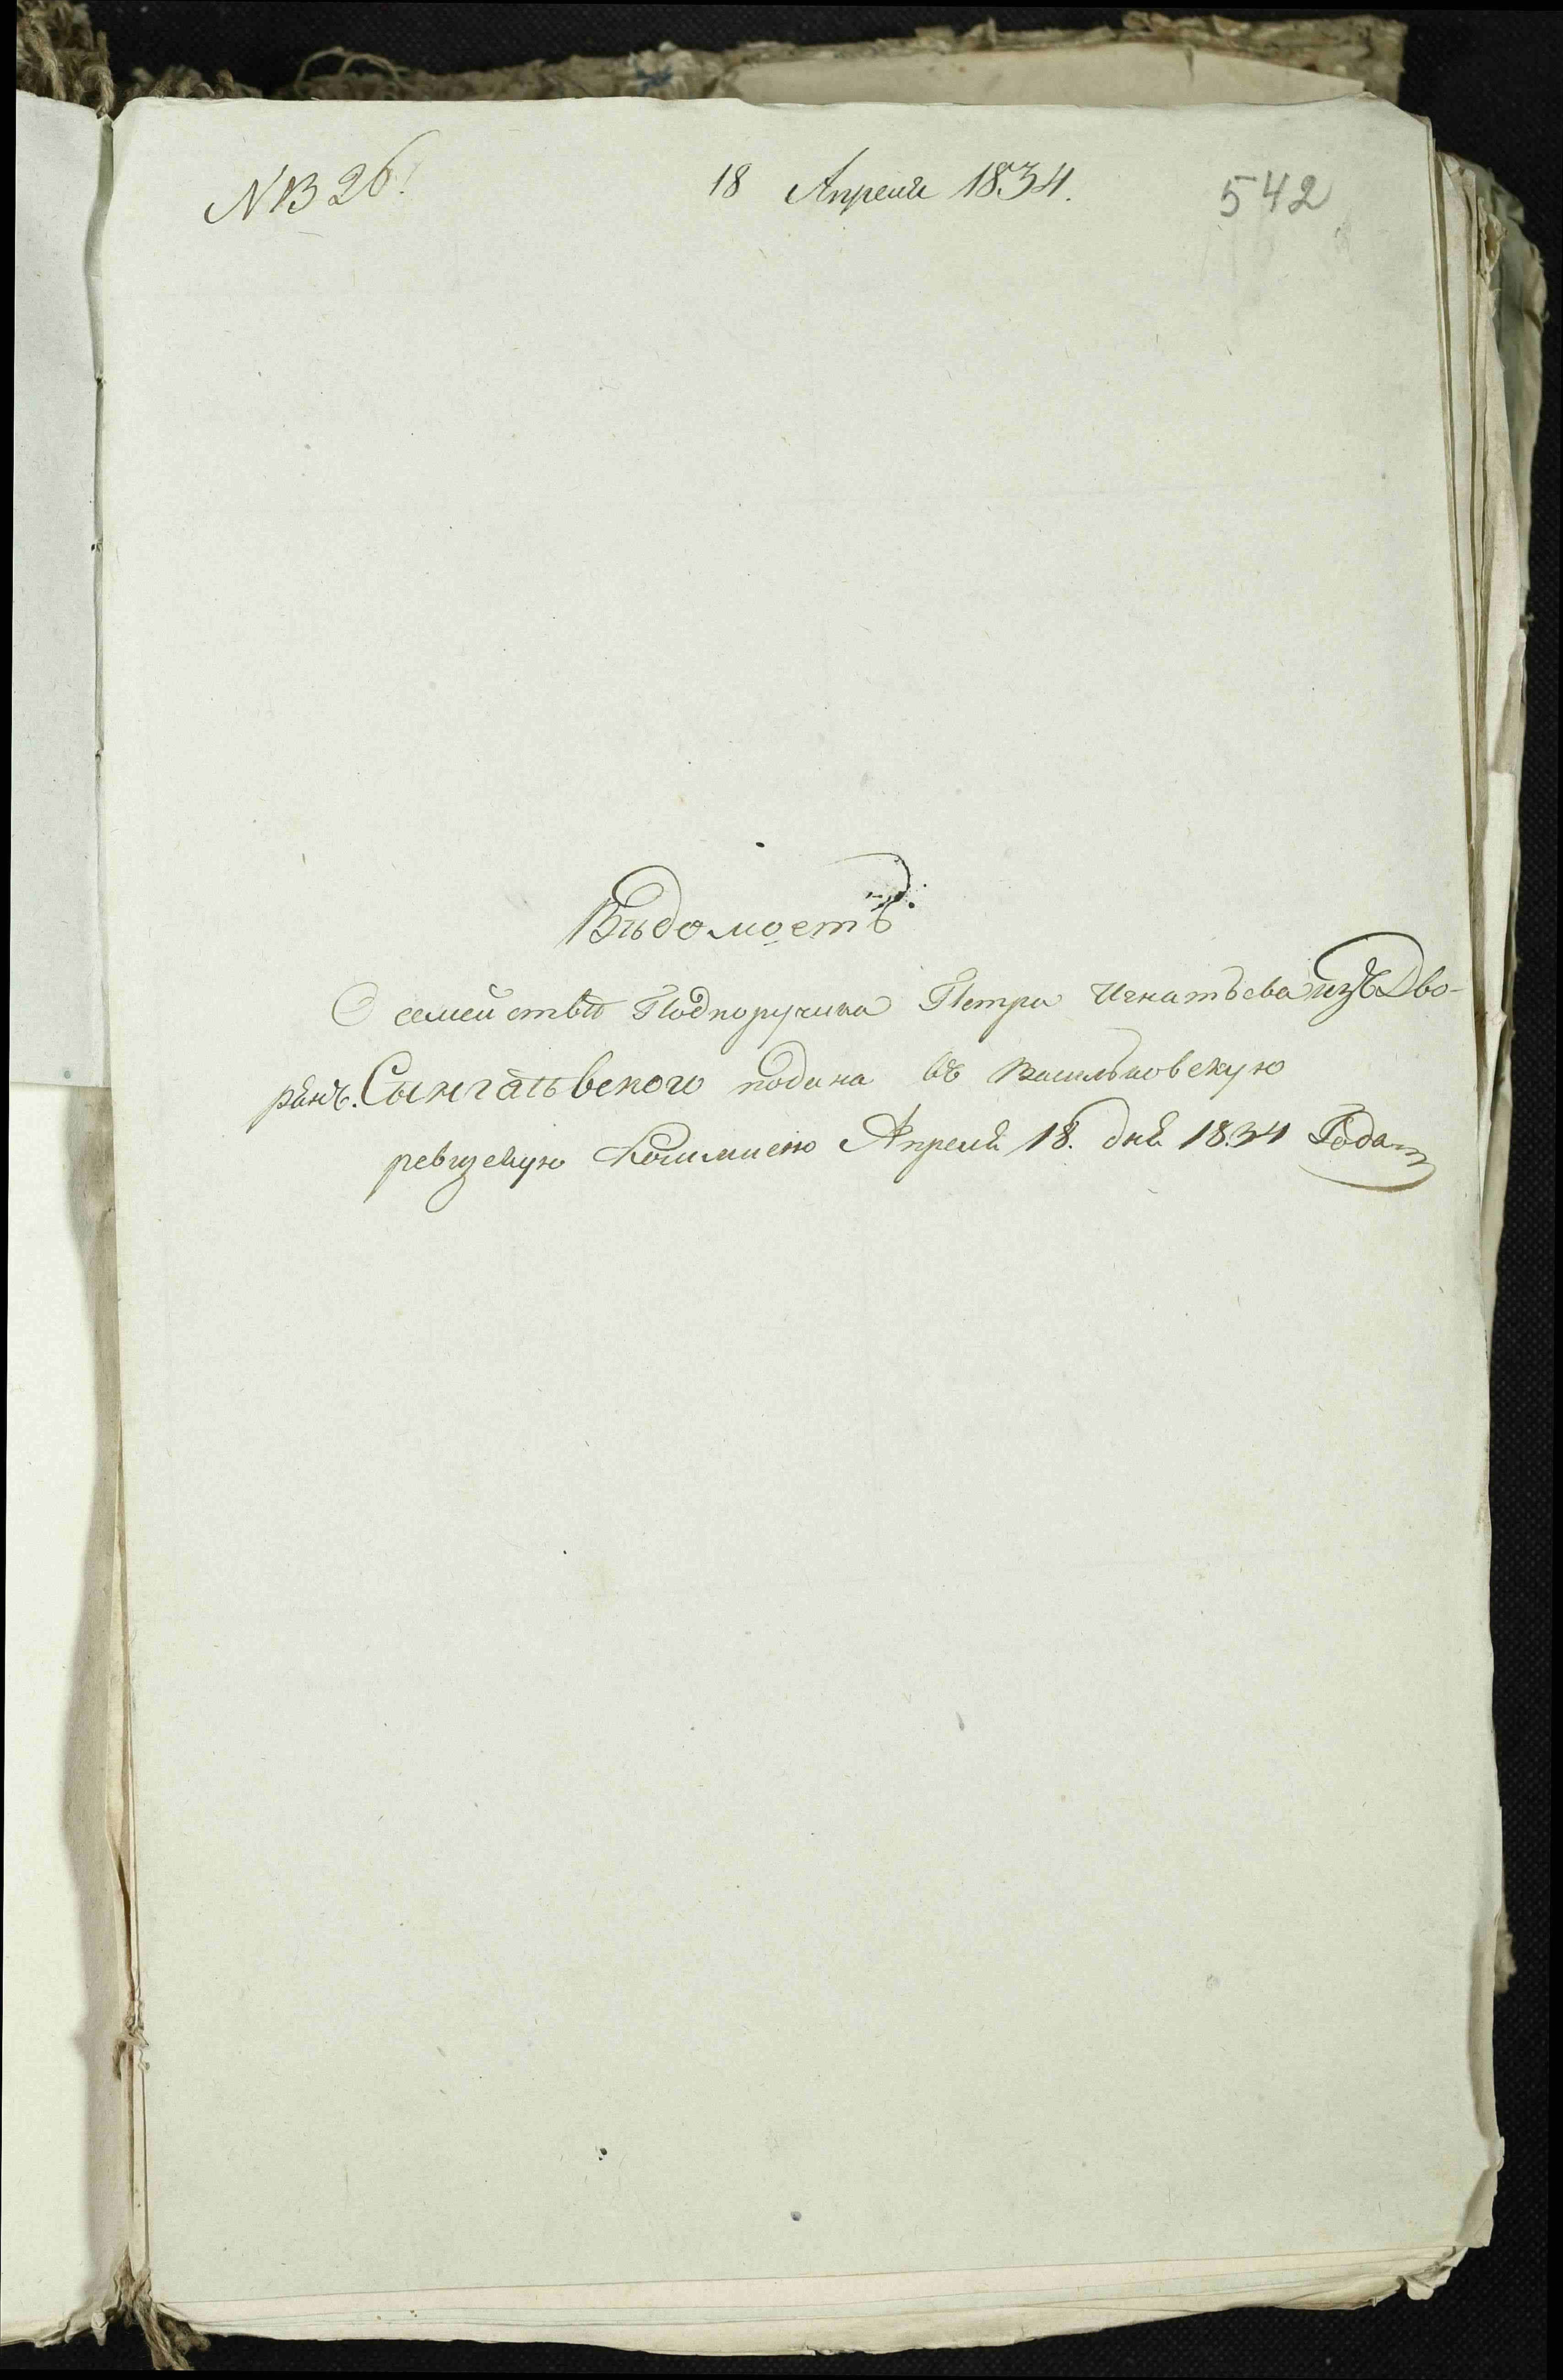 №1326.
18 Апреля 1834.
542
Вѣдомость
О семействѣ Подпоручика Петра Игнатьева изъ Дво-
рянъ. Сынгаѣвского подана въ Васильковскую
ревизскую Коммисию Апреля 18. дня 1834 Года